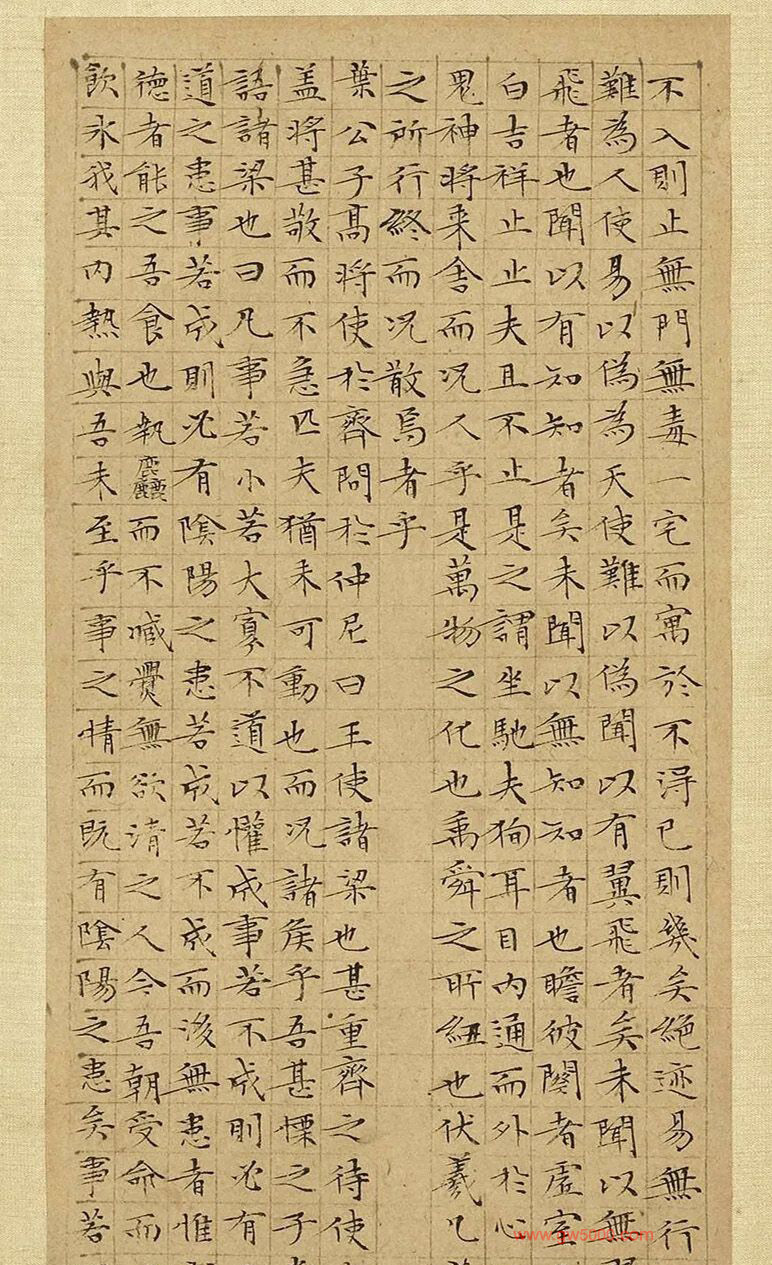 不入則止無門無毒一宅而寓於不得已則幾矣絕迹易無行
難為人使易以偽為天使難以偽聞以有翼飛者矣未聞以無
飛者也聞以有知知者矣未聞以無知知者也瞻彼闋者虛室
白吉祥止止夫且不止是之謂坐馳夫徇耳目內通而外於心
鬼神將来舍而況人乎是萬物之化也禹舜之所紐也伏羲几
之所行終而況散焉者乎
葉公子高將使於齊問於仲尼曰王使諸梁也甚重齊之待使
盖將甚敬而不急匹夫猶未可動也而況諸侯乎吾甚慄之子
語諸梁也曰凡事若小若大寡不道以懽成事若不成則必有
道之患事若成則必有陰陽之患若成若不成而後無患者惟
德者能之吾食也執麤而不臧爨無欲清之人今吾朝受命而
飲冰我其內熱與吾未至乎事之情而既有陰陽之患矣事若